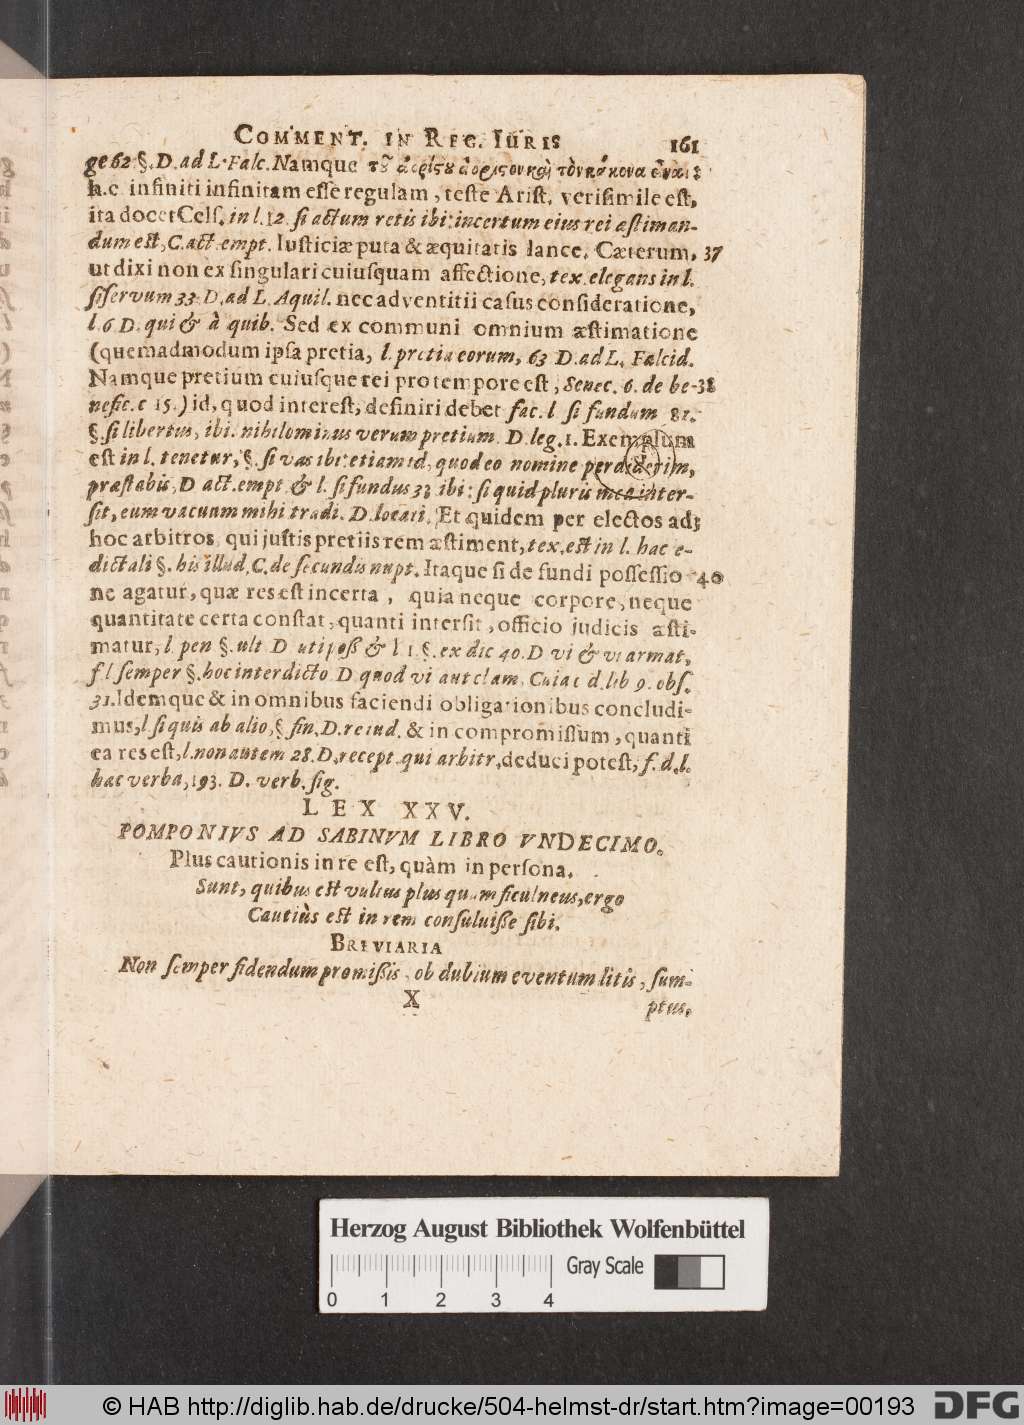 COMMENT. IN REG. IURIS 161
ge 62 §. D. ad L. Falc. Namque τοῦ ἀορίςου ἀόριςον καὶ τὸν κανόνα εἶναι
h.e. infiniti infinitam esse regulam, teste Arist. verisimile est,
ita docet Cels. in l. 12. si actum retis ibi: incertum eius rei æstiman-
dum est, C. act. empt. Iusticiæ puta & æquitatis lance. Cæterum, 37
ut dixi non ex singulari cuiusquam affectione, tex. elegans in l.
si servum 33. D. ad L. Aquil. nec adventitii casus consideratione,
l. 6 D. qui & à quib. Sed ex communi omnium æstimatione
(quemadmodum ipsa pretia, l. pretia eorum, 63 D. ad L. Falcid.
Namque pretium cuiusque rei pro tempore est, Senec. 6. de be- 38
nefic. c 15.) id, quod interest, definiri debet fac. l. si fundum 81.
§. si libertus, ibi. nihilominus verum pretium. D. leg. 1. Exemplum
est in l. tenetur, §. si vas ibi: etiam id, quod eo nomine perdiderim,
præstabis, D act. empt. & l. si fundus 33 ibi: si quid pluris mea inter-
sit, eum vacuum mihi tradi. D. locati. Et quidem per electos ad
hoc arbitros, qui justis pretiis rem æstiment, tex. est in l. hac e-
dictali §. his illud, C. de secundis nupt. Itaque si de fundi possessio- 40
ne agatur, quæ res est incerta, quia neque corpore, neque
quantitate certa constat, quanti intersit, officio judicis æsti-
matur, l. pen §. ult D uti poß & l 1 §. ex dic 40. D vi & vi armat,
f l semper §. hoc interdicto D quod vi aut clam. Cuiac d. lib 9. obs.
31. Idemque & in omnibus faciendi obligationibus concludi-
mus, l si quis ab alio, § fin. D. re iud. & in compromissum, quanti
ea res est, l. non autem 28. D. recept. qui arbitr. deduci potest, f. d. l.
hæc verba, 193. D. verb. sig.
LEX XXV.
POMPONIVS AD SABINVM LIBRO VNDECIMO.
Plus cautionis in re est, quàm in persona.
Sunt, quibus est vultus plus quam ficulneus, ergo
Cautiùs est in rem consuluiße sibi.
BREVIARIA
Non semper fidendum promißis, ob dubium eventum litis, sum-
X ptus,
Herzog August Bibliothek Wolfenbüttel
Gray Scale
0 1 2 3 4
© HAB http://diglib.hab.de/drucke/504-helmst-dr/start.htm?image=00193 DFG